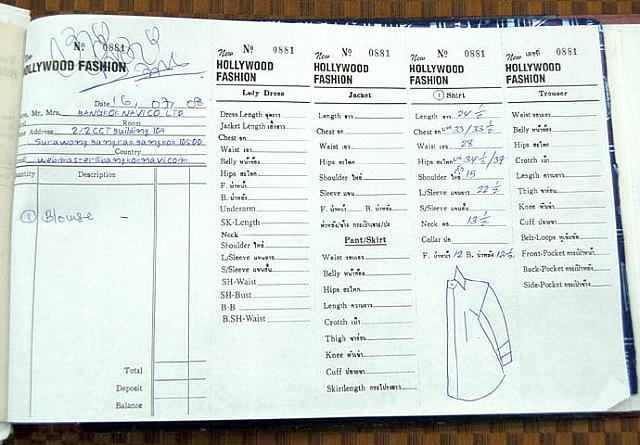 New
Nº 0881
HOLLYWOOD FASHION
Date 16, 07, 08
Mr, Mrs, BANGKOK NAVI CO LTD
Room
Address 2/2 CCT Building 10A
Surawong Bangrak Bangkok 10500
Country
webmaster@bangkoknavi.com
Description
① Blouse -
Total
Deposit
Balance
New Nº 0881
HOLLYWOOD
FASHION
Lady Dress
Dress Length ชุดยาว
Jacket Length เสื้อยาว
Chest อก
Waist เอว
Belly หน้าท้อง
Hips สะโพก
F. บ่าหน้า
B. บ่าหลัง
Underarm
SK-Length
Neck
Shoulder ไหล่
L/Sleeve แขนยาว
S/Sleeve แขนสั้น
SH-Waist
SH-Bust
B-B
B.SH-Waist
New Nº 0881
HOLLYWOOD
FASHION
Jacket
Length ยาว
Chest อก
Waist เอว
Hips สะโพก
Shoulder ไหล่
Sleeve แขน
F. บ่าหน้า B. บ่าหลัง
Pant/Skirt
Waist รอบเอว
Belly หน้าท้อง
Hips สะโพก
Length ความยาว
Crotch เป้า
Thigh ขาอ่อน
Knee หัวเข่า
Cuff ปลายขา
Skirtlength กระโปรงยาว
New Nº 0881
HOLLYWOOD
FASHION
① Shirt
Length ยาว 24 1/2
Chest อก 33/33 1/2
Waist เอว 28
Hips สะโพก 34 1/2/37
Shoulder ไหล่ 15
L/Sleeve แขนยาว 22 1/2
S/Sleeve แขนสั้น
Neck คอ 13 1/2
Collar ปก
F. บ่าหน้า 12 B. บ่าหลัง 13 1/2
New เลขที่ 0881
HOLLYWOOD
FASHION
Trouser
Waist รอบเอว
Belly หน้าท้อง
Hips สะโพก
Crotch เป้า
Length ความยาว
Thigh ขาอ่อน
Knee หัวเข่า
Cuff ปลายขา
Belt-Loops หูเข็มขัด
Front-Pocket กระเป๋าหน้า
Back-Pocket กระเป๋าหลัง
Side-Pocket กระเป๋าข้าง